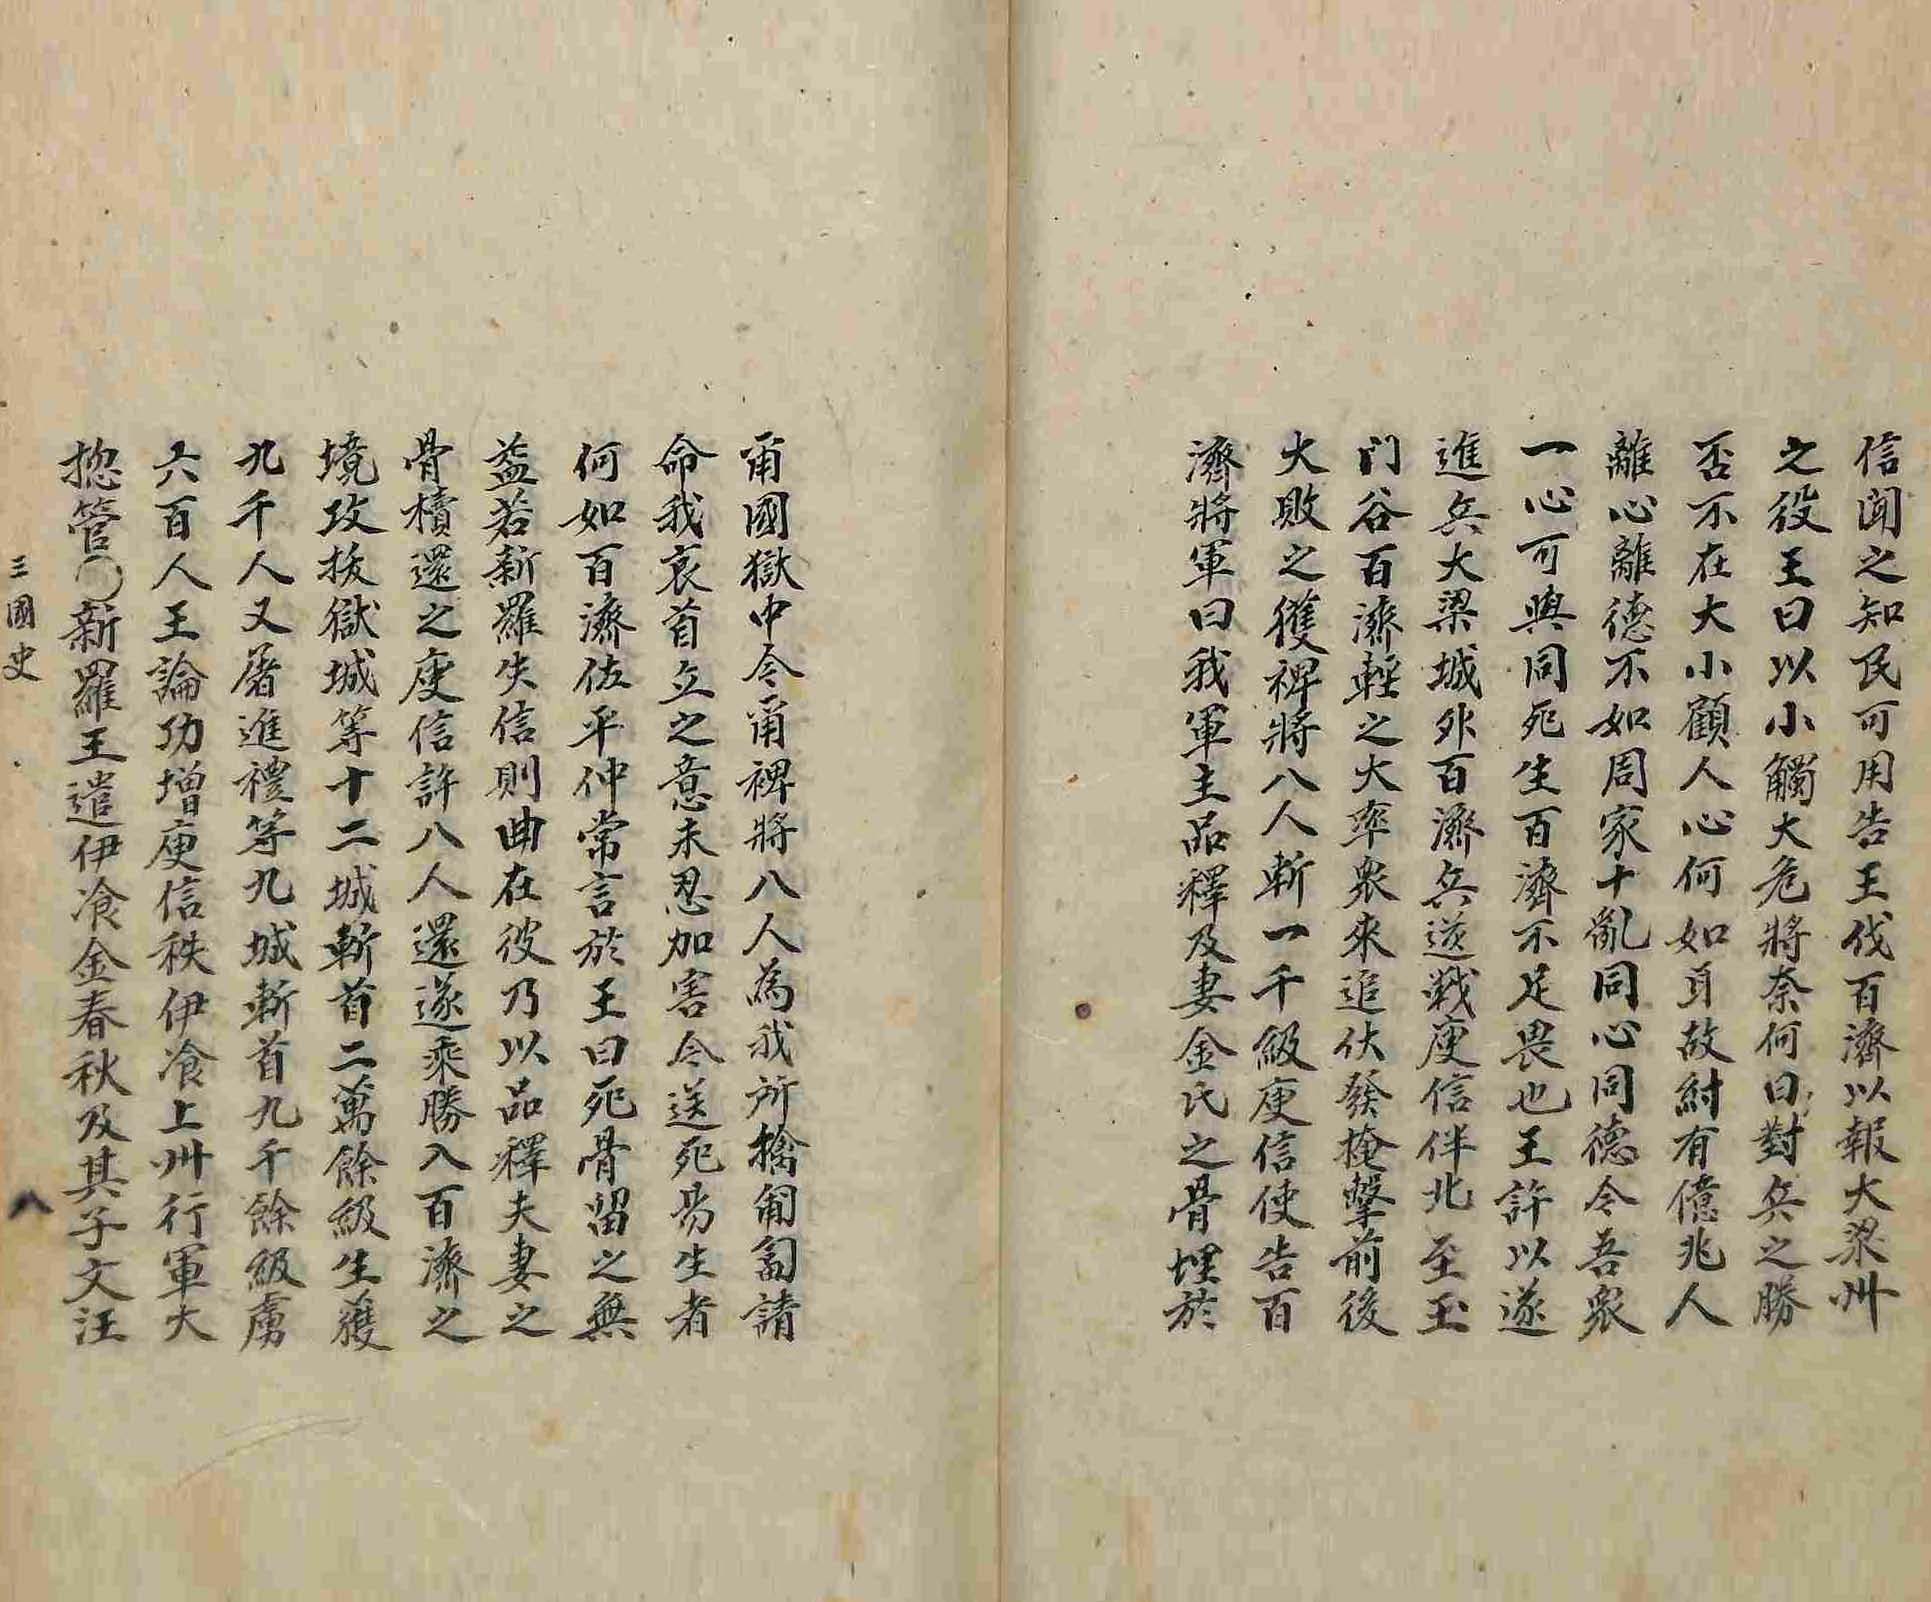 信聞之知民可用告王伐百濟以報大梁州
之役王曰以小觸大危將奈何曰對兵之勝
否不在大小顧人心何如耳故紂有億兆人
離心離德不如周家十亂同心同德今吾衆
一心可與同死生百濟不足畏也王許以遂
進兵大梁城外百濟兵逆戰庾信佯北至玉
门谷百濟輕之大率衆來追伏發掩擊前後
大敗之獲裨將八人斬一千級庾信使告百
濟將軍曰我軍主品釋及妻金氏之骨埋於
甭國獄中今甭裨將八人為我所擒匍匐請
命我哀首丘之意未忍加害今送死易生者
何如百濟佐平仲常言於王曰死骨留之無
益若新羅失信則曲在彼乃以品釋夫妻之
骨櫝還之庾信許八人還遂乘勝入百濟之
境攻拔獄城等十二城斬首二萬餘級生獲
九千人又屠進禮等九城斬首九千餘級虜
六百人王論功增庾信秩伊飡上州行軍大
摠管〇新羅王遣伊飡金春秋及其子文汪
三國史
八